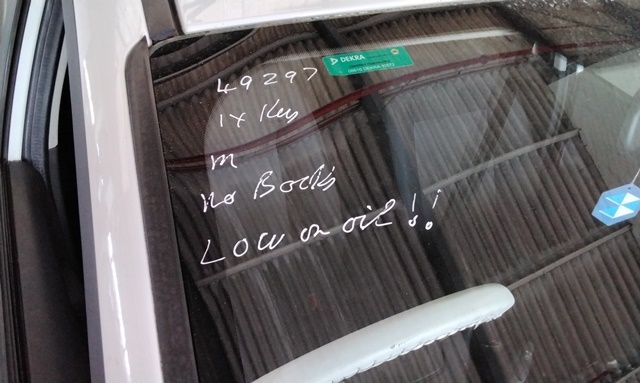 DEKRA
49297
1x Key
m
No Books
Low on oil!!